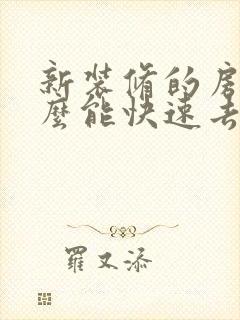 新装修的房
麼能快速去
羅又添